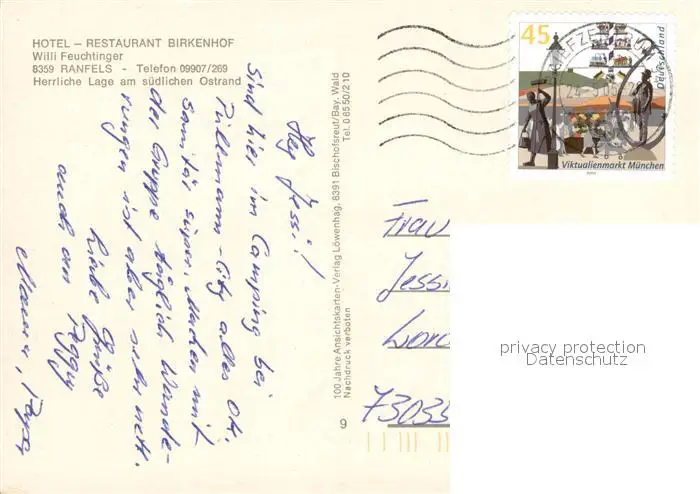 HOTEL – RESTAURANT BIRKENHOF
Willi Feuchtinger
8359 RANFELS - Telefon 09907/269
Herrliche Lage am südlichen Ostrand
Hey Jessi!
Sind hier im Camping bei
Pullmann-City alles OK.
Sanitär super. Machen mit
der Gruppe täglich Wande-
rungen ist aber sehr nett.
Liebe Grüße
auch an Peggy
Mama, Papa
100 Jahre Ansichtskarten-Verlag Löwenhag, 8391 Bischofsreut/Bay. Wald
Nachdruck verboten
Tel. 08550/210
9
45
Deutschland
Viktualienmarkt München
BRIEFZENTRUM
Frau
Jessi
73033
privacy protection
Datenschutz